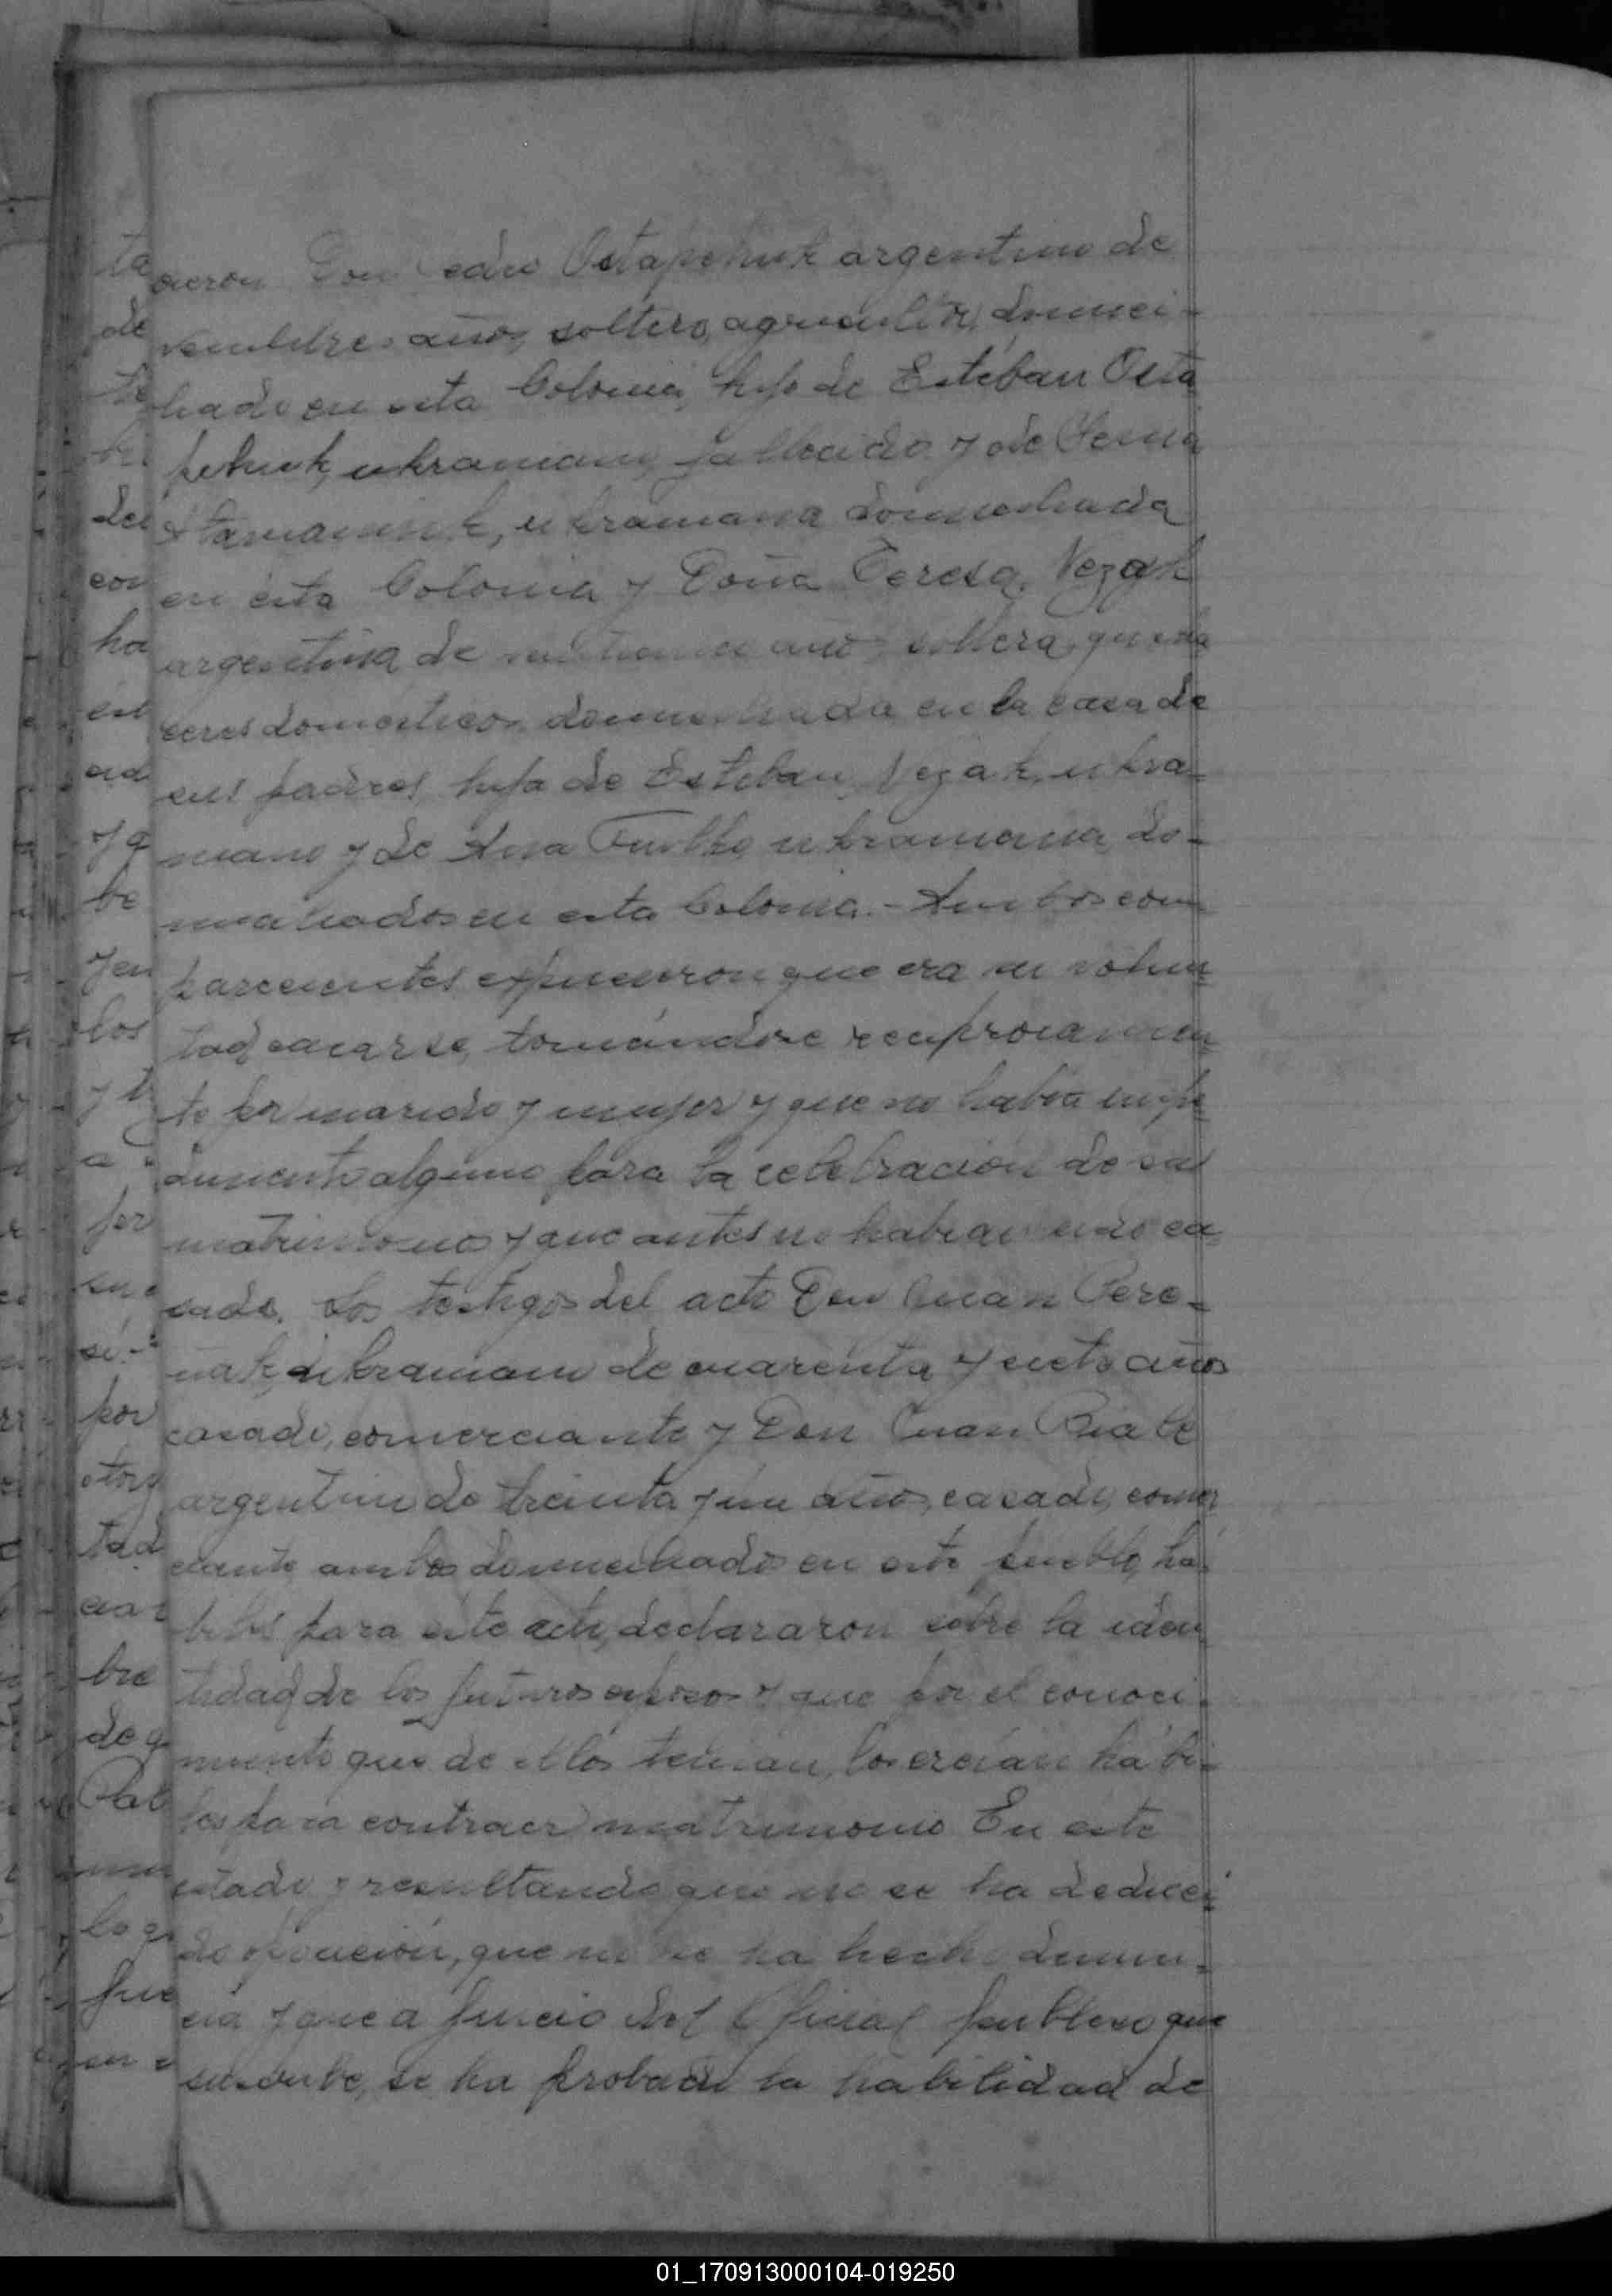 cieron Don Pedro Ostapchuk argentino de
veintitres años, soltero, agricultor, domici-
liado en esta Colonia, hijo de Estéban Osta
pchuk, ukraniano, fallecido y de
ukraniana domiciliada
en ésta Colonia y Doña Teresa Nezak
argentina de años soltera, queha
ceres domésticos, domiciliada en la casa de
sus padres, hija de Esteban Nezak, ukra-
niano y de Ana ukraniana, do-
miciliados en esta Colonia.- Ambos com
parecientes expusieron que era su volun
tad casarse, tomándose reciprocamen
te por marido y mujer y que no habia impe
dimento alguno para la celebración de su
matrimonio y que antes no habian sido ca
sado. Los testigos del acto Don Juan Pere-
nak, ukraniano de cuarenta y siete años
casado, comerciante y Don Juan
argentino de treinta y un años, casado, comer
ciante ambos domiciliados en este pueblo, há-
biles para este acto, declararon sobre la iden
tidad de los futuros esposos y que por el conoci-
miento que de ellos tenian, los creían hábi-
les para contraer matrimonio En este
estado y resultando que no se ha deduci
do oposición, que no se ha hecho denun-
cia y que a juicio del Oficial público que
suscribe, se ha probado la habilidad de
01_170913000104-019250